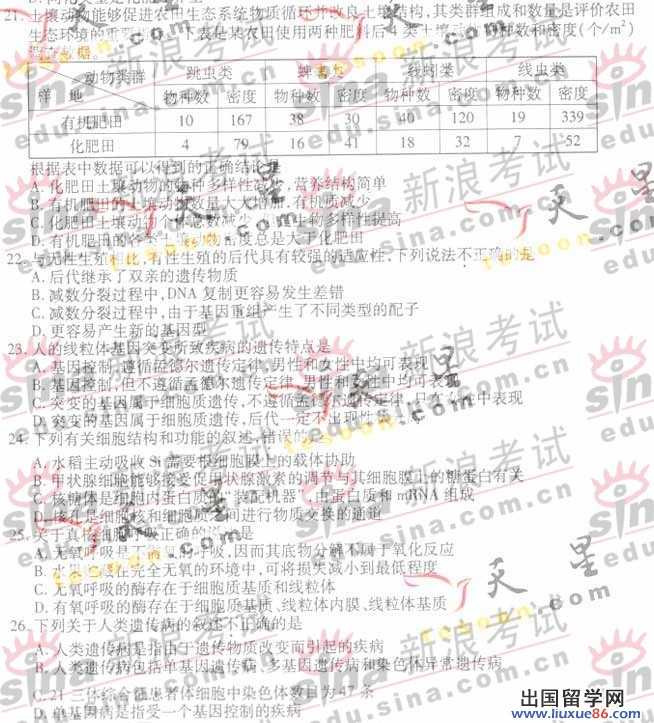 21. 土壤动物能够促进农田生态系统物质循环并改良土壤结构,其类群组成和数量是评价农田
生态环境的重要 下表是某农田使用两种肥料后4类土壤动物 种数和密度(个/m²)
调查数据。
动物类群 跳虫类 蜱螨类 线蚓类 线虫类
样 地 物种数 密度 物种数 密度 物种数 密度 物种数 密度
有机肥田 10 167 38 30 40 120 19 339
化肥田 4 79 16 41 18 32 7 52
根据表中数据可以得到的正确结论是
A. 化肥田土壤动物的物种多样性减少,营养结构简单
B. 有机肥田的土壤动物数量大大增加,有机质减少
C. 化肥田土壤动物个体总数减少, 物多样性提高
D. 有机肥田的各类土壤动物密度总是大于化肥田
22. 与无性生殖相比,有性生殖的后代具有较强的适应性,下列说法不正确的是
A. 后代继承了双亲的遗传物质
B. 减数分裂过程中,DNA 复制更容易发生差错
C. 减数分裂过程中,由于基因重组产生了不同类型的配子
D. 更容易产生新的基因型
23. 人的线粒体基因突变所致疾病的遗传特点是
A. 基因控制,遵循孟德尔遗传定律,男性和女性中均可表现
B. 基因控制,但不遵循孟德尔遗传定律,男性和女性中均可表现
C. 突变的基因属于细胞质遗传,不遵循孟德尔遗传定律,只在女性中表现
D. 突变的基因属于细胞质遗传,后代一定不出现性
24. 下列有关细胞结构和功能的叙述,错误的
A. 水稻主动吸收 Si 需要根细胞膜上的载体协助
B. 甲状腺细胞能够接受促甲状腺激素的调节与其细胞膜上的糖蛋白有关
C. 核糖体是细胞内蛋白质的"装配机器",由蛋白质和 mRNA 组成
D. 核孔是细胞核和细胞质之间进行物质交换的通道
25. 关于真核细胞呼吸正确的 是
A. 无氧呼吸是不需 的呼吸,因而其底物分解不属于氧化反应
B. 水果贮藏在完全无氧的环境中,可将损失减小到最低程度
C. 无氧呼吸的酶存在于细胞质基质和线粒体
D. 有氧呼吸的酶存在于细胞质基质、线粒体内膜、线粒体基质
26. 下列关于人类遗传病的叙述不正确的是
A. 人类遗传病是指由于遗传物质改变而引起的疾病
B. 人类遗传病包括单基因遗传病、多基因遗传病和染色体异常遗传病
C. 21 三体综合征患者体细胞中染色体数目为 47 条
D. 单基因病是指受一个基因控制的疾病
新浪考试
sina
edu.sina.com.cn
天星
tesoon.com
出国留学网
www.liuxue86.com